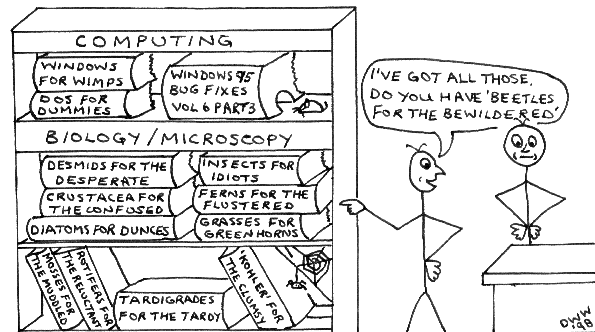 COMPUTING
WINDOWS
FOR WIMPS
DOS FOR
DUMMIES
WINDOWS 95
BUG FIXES
VOL 6 PART3
BIOLOGY/MICROSCOPY
DESMIDS FOR THE
DESPERATE
CRUSTACEA FOR
THE CONFUSED
DIATOMS FOR DUNCES
INSECTS FOR
IDIOTS
FERNS FOR THE
FLUSTERED
GRASSES FOR
GREENHORNS
MOSSES FOR
THE MUDDLED
ROTIFERS FOR
THE RELUCTANT
TARDIGRADES
FOR THE TARDY
'KOHLER' FOR
THE CLUMSY
I'VE GOT ALL THOSE,
DO YOU HAVE 'BEETLES
FOR THE BEWILDERED'
DWW
'98